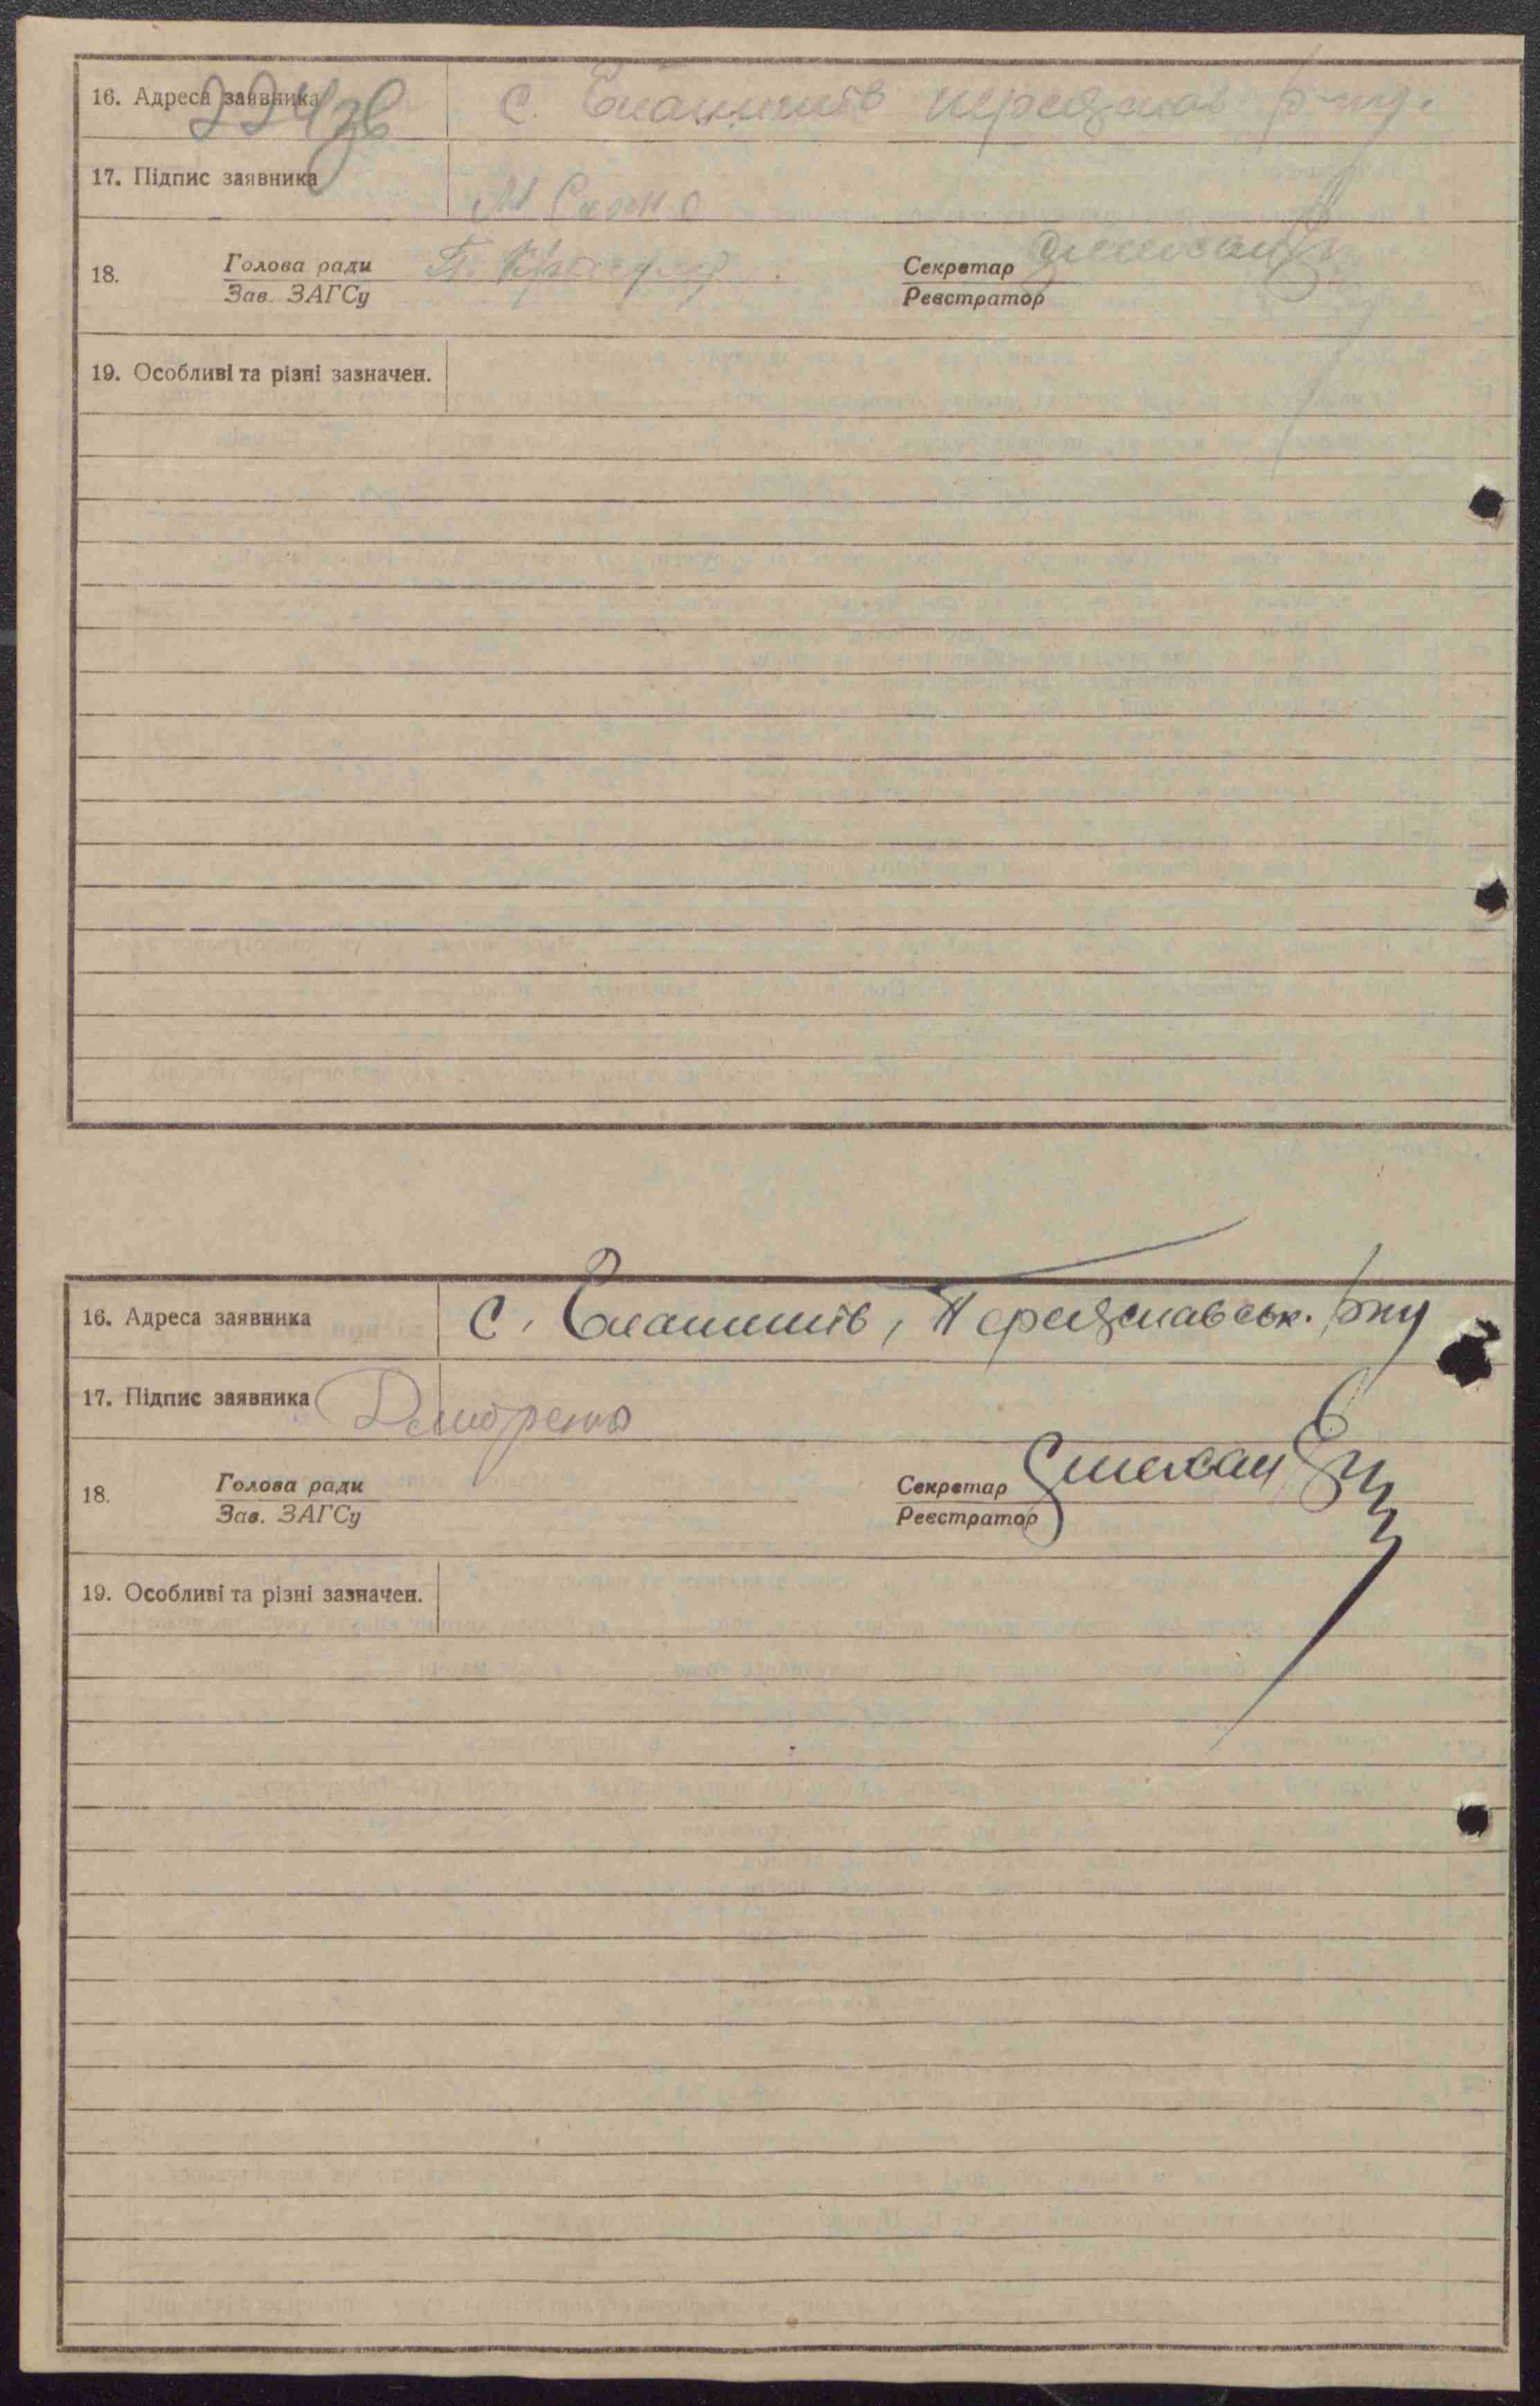 16. Адреса заявника С. Єлашинів Переяслав р-ну.
224 зв
17. Підпис заявника
18. Голова ради Секретар
Зав. ЗАГСу Реєстратор
19. Особливі та різні зазначен.
16. Адреса заявника С. Єлашинів, Переяславськ. р-ну
17. Підпис заявника
18. Голова ради Секретар
Зав. ЗАГСу Реєстратор
19. Особливі та різні зазначен.